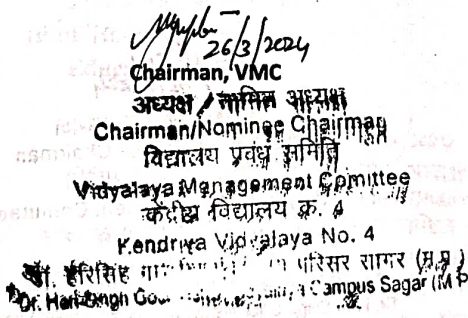 26/3/2024
Chairman, VMC
अध्यक्ष / नामित अध्यक्ष
Chairman/Nominee Chairman
विद्यालय प्रबंध समिति
Vidyalaya Management Comittee
केंद्रीय विद्यालय क्र. 4
Kendriya Vidyalaya No. 4
डॉ. हरिसिंह परिसर सागर (म.प्र.)
Dr. Hari Singh Campus Sagar (M.P.